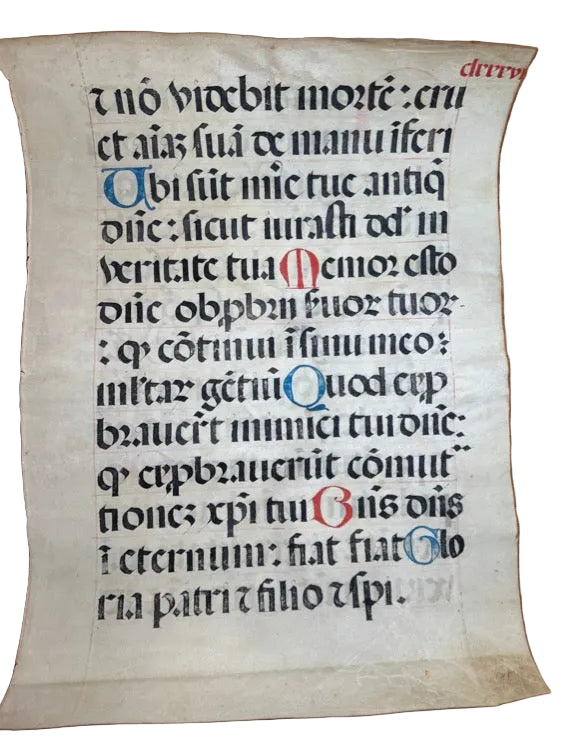 clxxxvi
⁊ nō videbit mortē : eru
et aīaʒ suā de manu īferi
Ubi sūt mīe tue antiq̄
dñe : sicut iurasti dd' in
veritate tua Memor esto
dñe obꝓbrii ẜuoꝝ tuoꝝ
: qͥ cōtinui ī sinu meo :
mĺtaꝝ gētiū Quod exp
braueŕt inimici tui dñe :
qͥ exꝓbrauerūt cōmut
tioneʒ xp̄i tui Bn̄s dn̄s
ī eternum : fiat fiat Glo
ria patri ⁊ filio ⁊ spi .